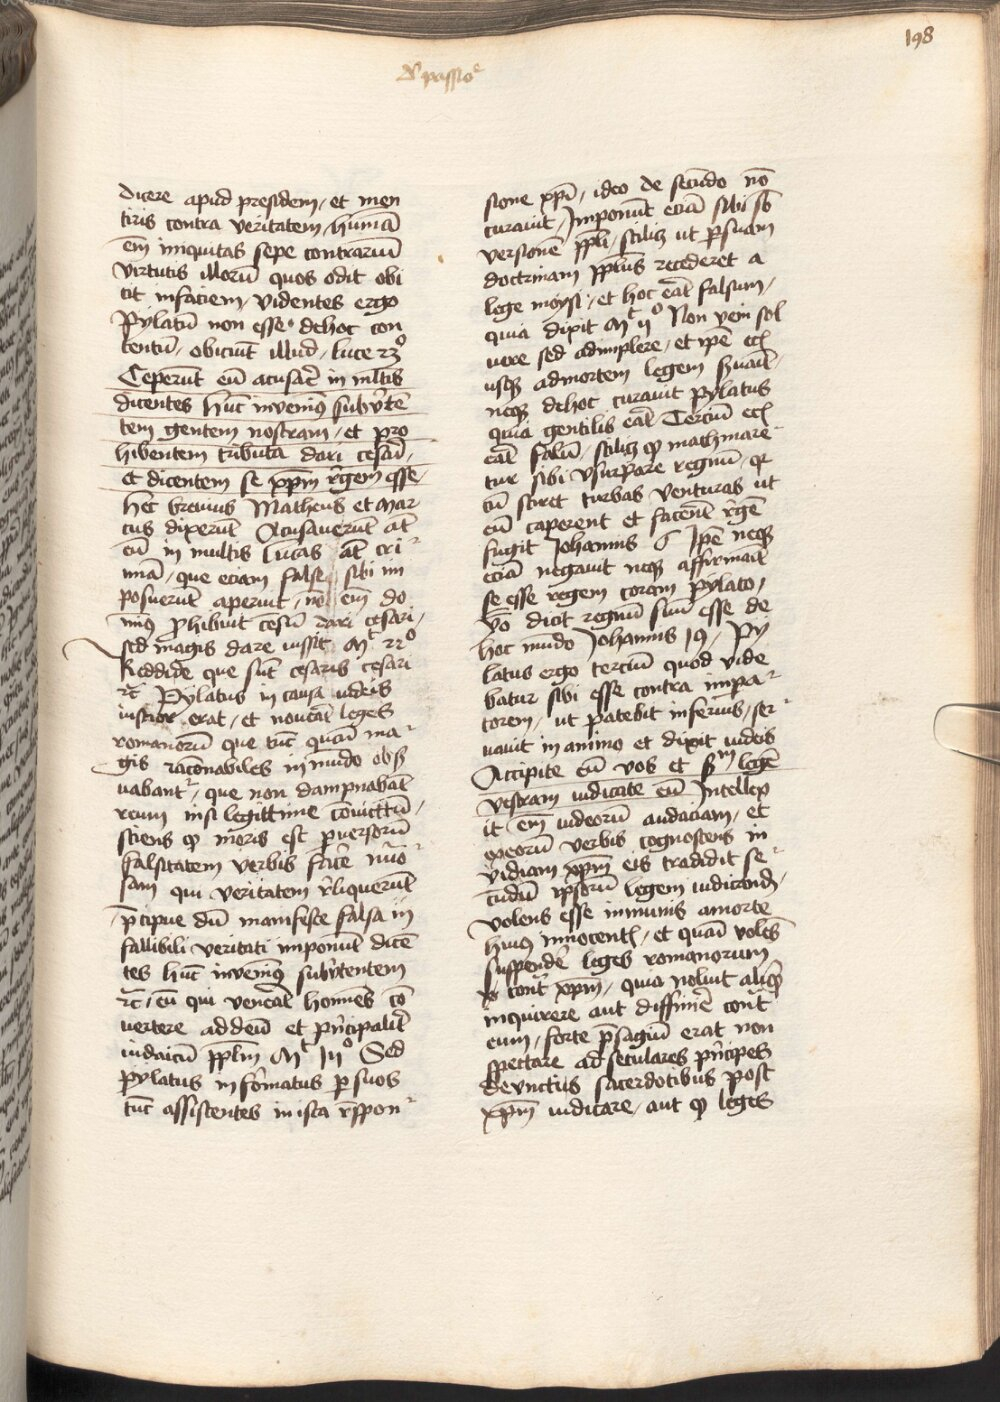 198
De passioe
dicere apud presidem / et men
tiris contra veritatem / humā
em iniquitas sepe contrarium
virtutis illorū quos odit obi
cit in faciem / videntes ergo
Pylatū non esse dehoc con
tentū / obiciūt illud / luce 23º
Ceperūt eū acusare in mltis
dicentes hūc invenimꝰ subvˀte
tem gentem nostram / et pro
hibentem tributa dari cesari /
et dicentem se xp̄m rˀgem esse /
hec brevius Matheus et Mar
cus dixerūt Acusaverūt at
eū in multis Lucas at cri
mīa / que eciam false sibi im
posuerūt aperuit / nō em̄ do
minꝰ ꝓhibuit cesū dari cesari /
sed magis dare iussit Mt 22º
Reddite que sūt cesaris cesari
rc̄ Pylatus in causa iudeis
iustior erat / et noverat leges
romanorū que tūc quam ma
gis racōnabiles in mūdo obs
uabantˀ / que non dampnabāt
reum nisi legittime cōuictū /
sciens ꝙ moris est ꝑversorū
falsitatem verbis facˀe
sam qui veritatem rˀliquerūt
p̄cipue dū manifeste falsa in
fallibili veritati imponūt dicē
tes hūc invenimꝰ subvˀtentem
rc̄ / eū qui venerat homines cō
uertere ad deū et pˀncipalitˀ
iudaicū ppl̄m Mt
pylatus informatus ꝑ suos
tūc assistentes in ista rˀspon
sione xp̄i / ideo de secūdo nō
curauit / Imponūt eciā sibi sb
versionē ppl̄i / scilicet ut ꝑ suam
doctrinam pplūs recederet a
lege moysi / et hoc erat falsum /
quia dixit Mt Non veni sol
uere sed adimplere / et ipē ecˀ
usqꝫ ad mortem legem
neqꝫ dehoc curauit pylatus
quia gentilis erat Tercium ecˀ
erat falsū / scilicet ꝙ machinare
tur sibi vsurpare regnū / qr
cū sciret turbas venturas ut
eū caperent et facerēt rˀgē
fugit Johannis 6 Ipē neqꝫ
eciā negauit neqꝫ affirmauit
se esse regem coram pylato /
dicit regnū suū esse de
hoc mūdo Johannis 19 / Py
latus ergo terciū quod vide
batur sibi esse contra impa
torem / ut patebit inferius / ser
uauit in animo et dixit iudeis
Accipite eū vos et scdm legē
vestram iudicate eū Intellex
it em̄ iudeorū audaciam / et
ex eorū verbis cognoscens in
vidiam xp̄m eis tradidit se
cūdū ipsorū legem iudicandū /
volens esse inmunis a morte
huiꝰ innocentis / et quam voles
suspendˀe leges romanorum
contˀ xp̄m / quia noluit aliqd
inquirere aut diffinire contˀ
eum / forte p̄sagiū erat non
spectare ad seculares pˀncipes
de vnctus sacerdotibus post
xp̄m iudicare / aut ꝙ leges